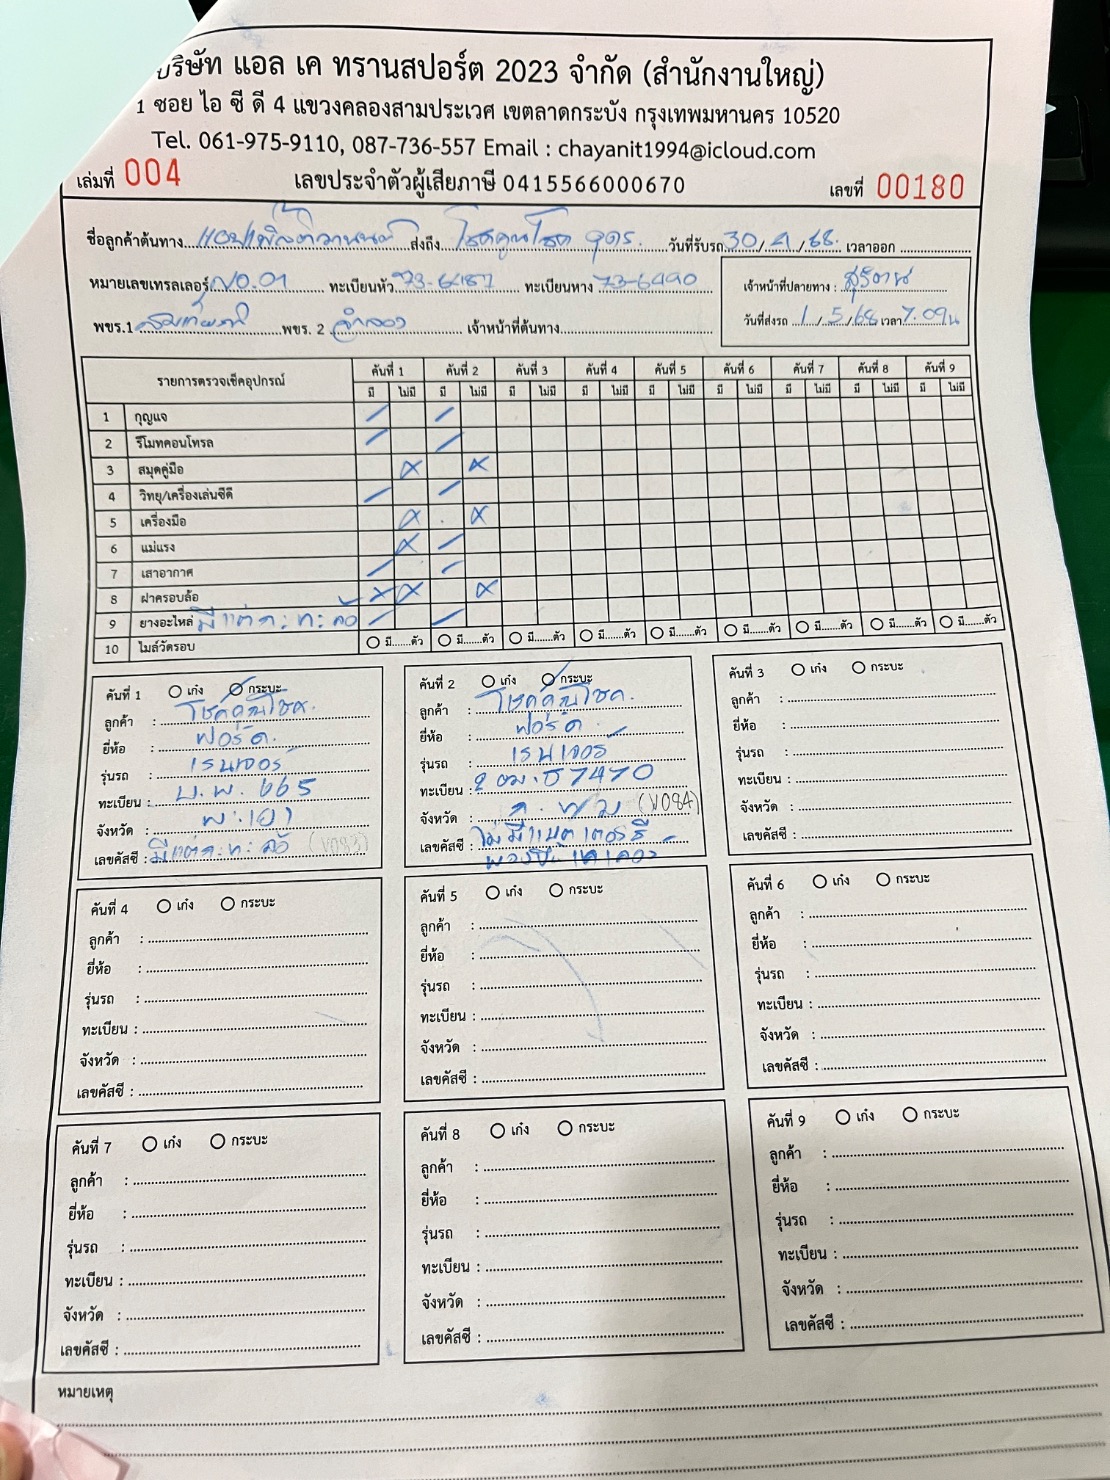 บริษัท แอล เค ทรานสปอร์ต 2023 จำกัด (สำนักงานใหญ่)
1 ซอย ไอ ซี ดี 4 แขวงคลองสามประเวศ เขตลาดกระบัง กรุงเทพมหานคร 10520
Tel. 061-975-9110, 087-736-557 Email : chayanit1994@icloud.com
เล่มที่ 004 เลขประจำตัวผู้เสียภาษี 0415566000670 เลขที่ 00180
ชื่อลูกค้าต้นทาง ส่งถึง โชคคูณโชค อุดร วันที่รับรถ 30/4/68 เวลาออก
หมายเลขเทรลเลอร์ NO.01 ทะเบียนหัว 73-6487 ทะเบียนหาง 73-6490 เจ้าหน้าที่ปลายทาง :
พขร.1 พขร. 2 จำลอง เจ้าหน้าที่ต้นทาง วันที่ส่งรถ 1/5/68 เวลา 7.09น
รายการตรวจเช็คอุปกรณ์ คันที่ 1 คันที่ 2 คันที่ 3 คันที่ 4 คันที่ 5 คันที่ 6 คันที่ 7 คันที่ 8 คันที่ 9
มี ไม่มี มี ไม่มี มี ไม่มี มี ไม่มี มี ไม่มี มี ไม่มี มี ไม่มี มี ไม่มี มี ไม่มี
1 กุญแจ
2 รีโมทคอนโทรล
3 สมุดคู่มือ
4 วิทยุ/เครื่องเล่นซีดี
5 เครื่องมือ
6 แม่แรง
7 เสาอากาศ
8 ฝาครอบล้อ
9 ยางอะไหล่ มีแต่กะทะล้อ
10 ไมล์วัดรอบ มี......ตัว มี......ตัว มี......ตัว มี......ตัว มี......ตัว มี......ตัว มี......ตัว มี......ตัว มี......ตัว
คันที่ 1 เก๋ง กระบะ
ลูกค้า : โชคคูณโชค
ยี่ห้อ : ฟอร์ด
รุ่นรถ : เรนเจอร์
ทะเบียน : บ.พ. 665
จังหวัด : พะเยา
เลขคัสซี : มีแต่กะทะล้อ (V083)
คันที่ 2 เก๋ง กระบะ
ลูกค้า : โชคคูณโชค
ยี่ห้อ : ฟอร์ด
รุ่นรถ : เรนเจอร์
ทะเบียน : 2 ฒธ 7470
จังหวัด : ก.ท.ม (V084)
เลขคัสซี : ไม่มีแบตเตอรี่
คันที่ 3 เก๋ง กระบะ
ลูกค้า :
ยี่ห้อ :
รุ่นรถ :
ทะเบียน :
จังหวัด :
เลขคัสซี :
คันที่ 4 เก๋ง กระบะ
ลูกค้า :
ยี่ห้อ :
รุ่นรถ :
ทะเบียน :
จังหวัด :
เลขคัสซี :
คันที่ 5 เก๋ง กระบะ
ลูกค้า :
ยี่ห้อ :
รุ่นรถ :
ทะเบียน :
จังหวัด :
เลขคัสซี :
คันที่ 6 เก๋ง กระบะ
ลูกค้า :
ยี่ห้อ :
รุ่นรถ :
ทะเบียน :
จังหวัด :
เลขคัสซี :
คันที่ 7 เก๋ง กระบะ
ลูกค้า :
ยี่ห้อ :
รุ่นรถ :
ทะเบียน :
จังหวัด :
เลขคัสซี :
คันที่ 8 เก๋ง กระบะ
ลูกค้า :
ยี่ห้อ :
รุ่นรถ :
ทะเบียน :
จังหวัด :
เลขคัสซี :
คันที่ 9 เก๋ง กระบะ
ลูกค้า :
ยี่ห้อ :
รุ่นรถ :
ทะเบียน :
จังหวัด :
เลขคัสซี :
หมายเหตุ